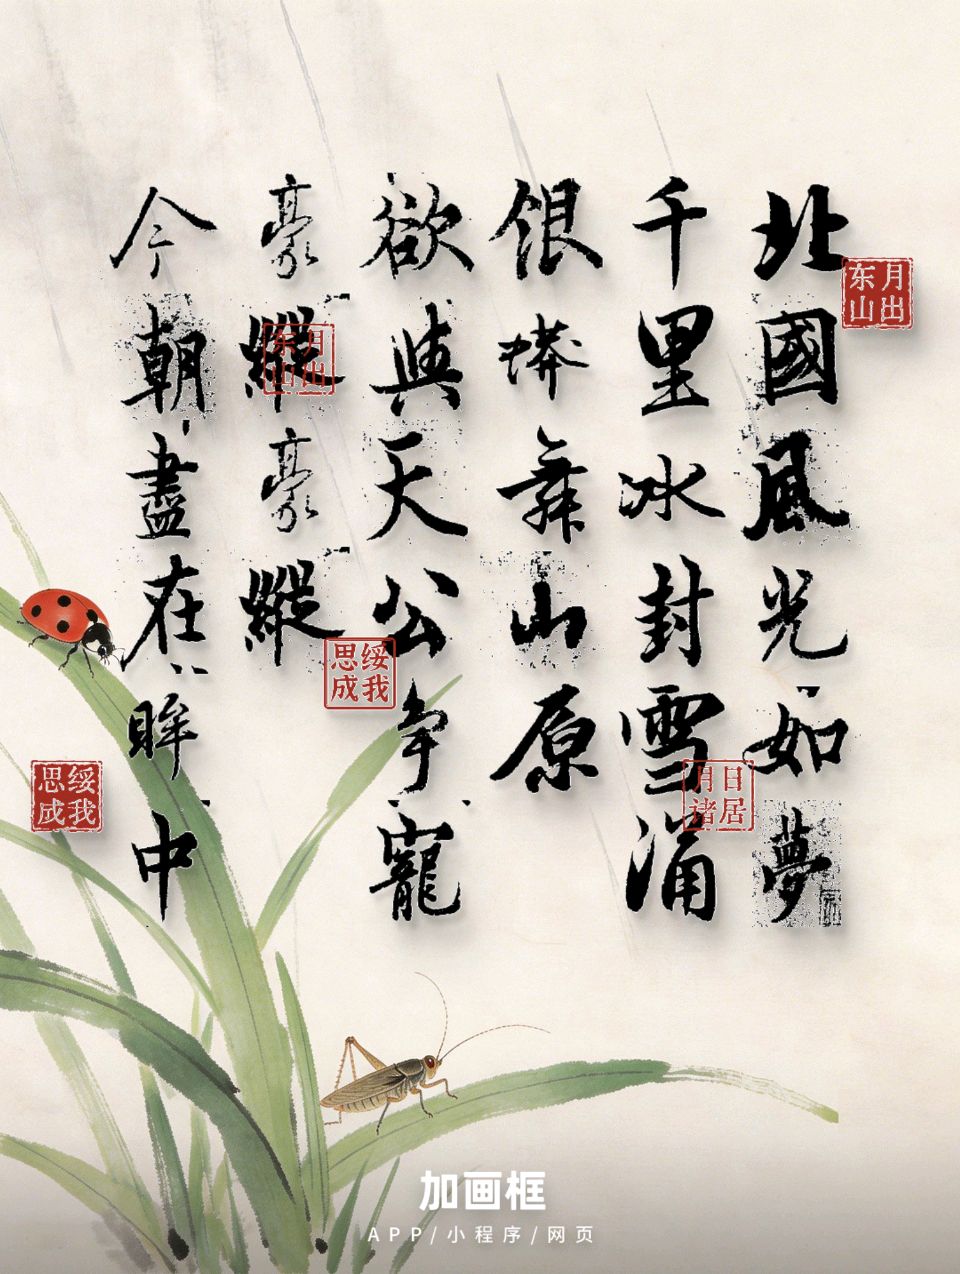 北國風光如夢
千里冰封雪涌
银蟒舞山原
欲與天公争寵
豪縱豪縱
今朝盡在眸中
月出
东山
日居
月诸
月出
东山
绥我
思成
绥我
思成
加画框
APP/小程序/网页